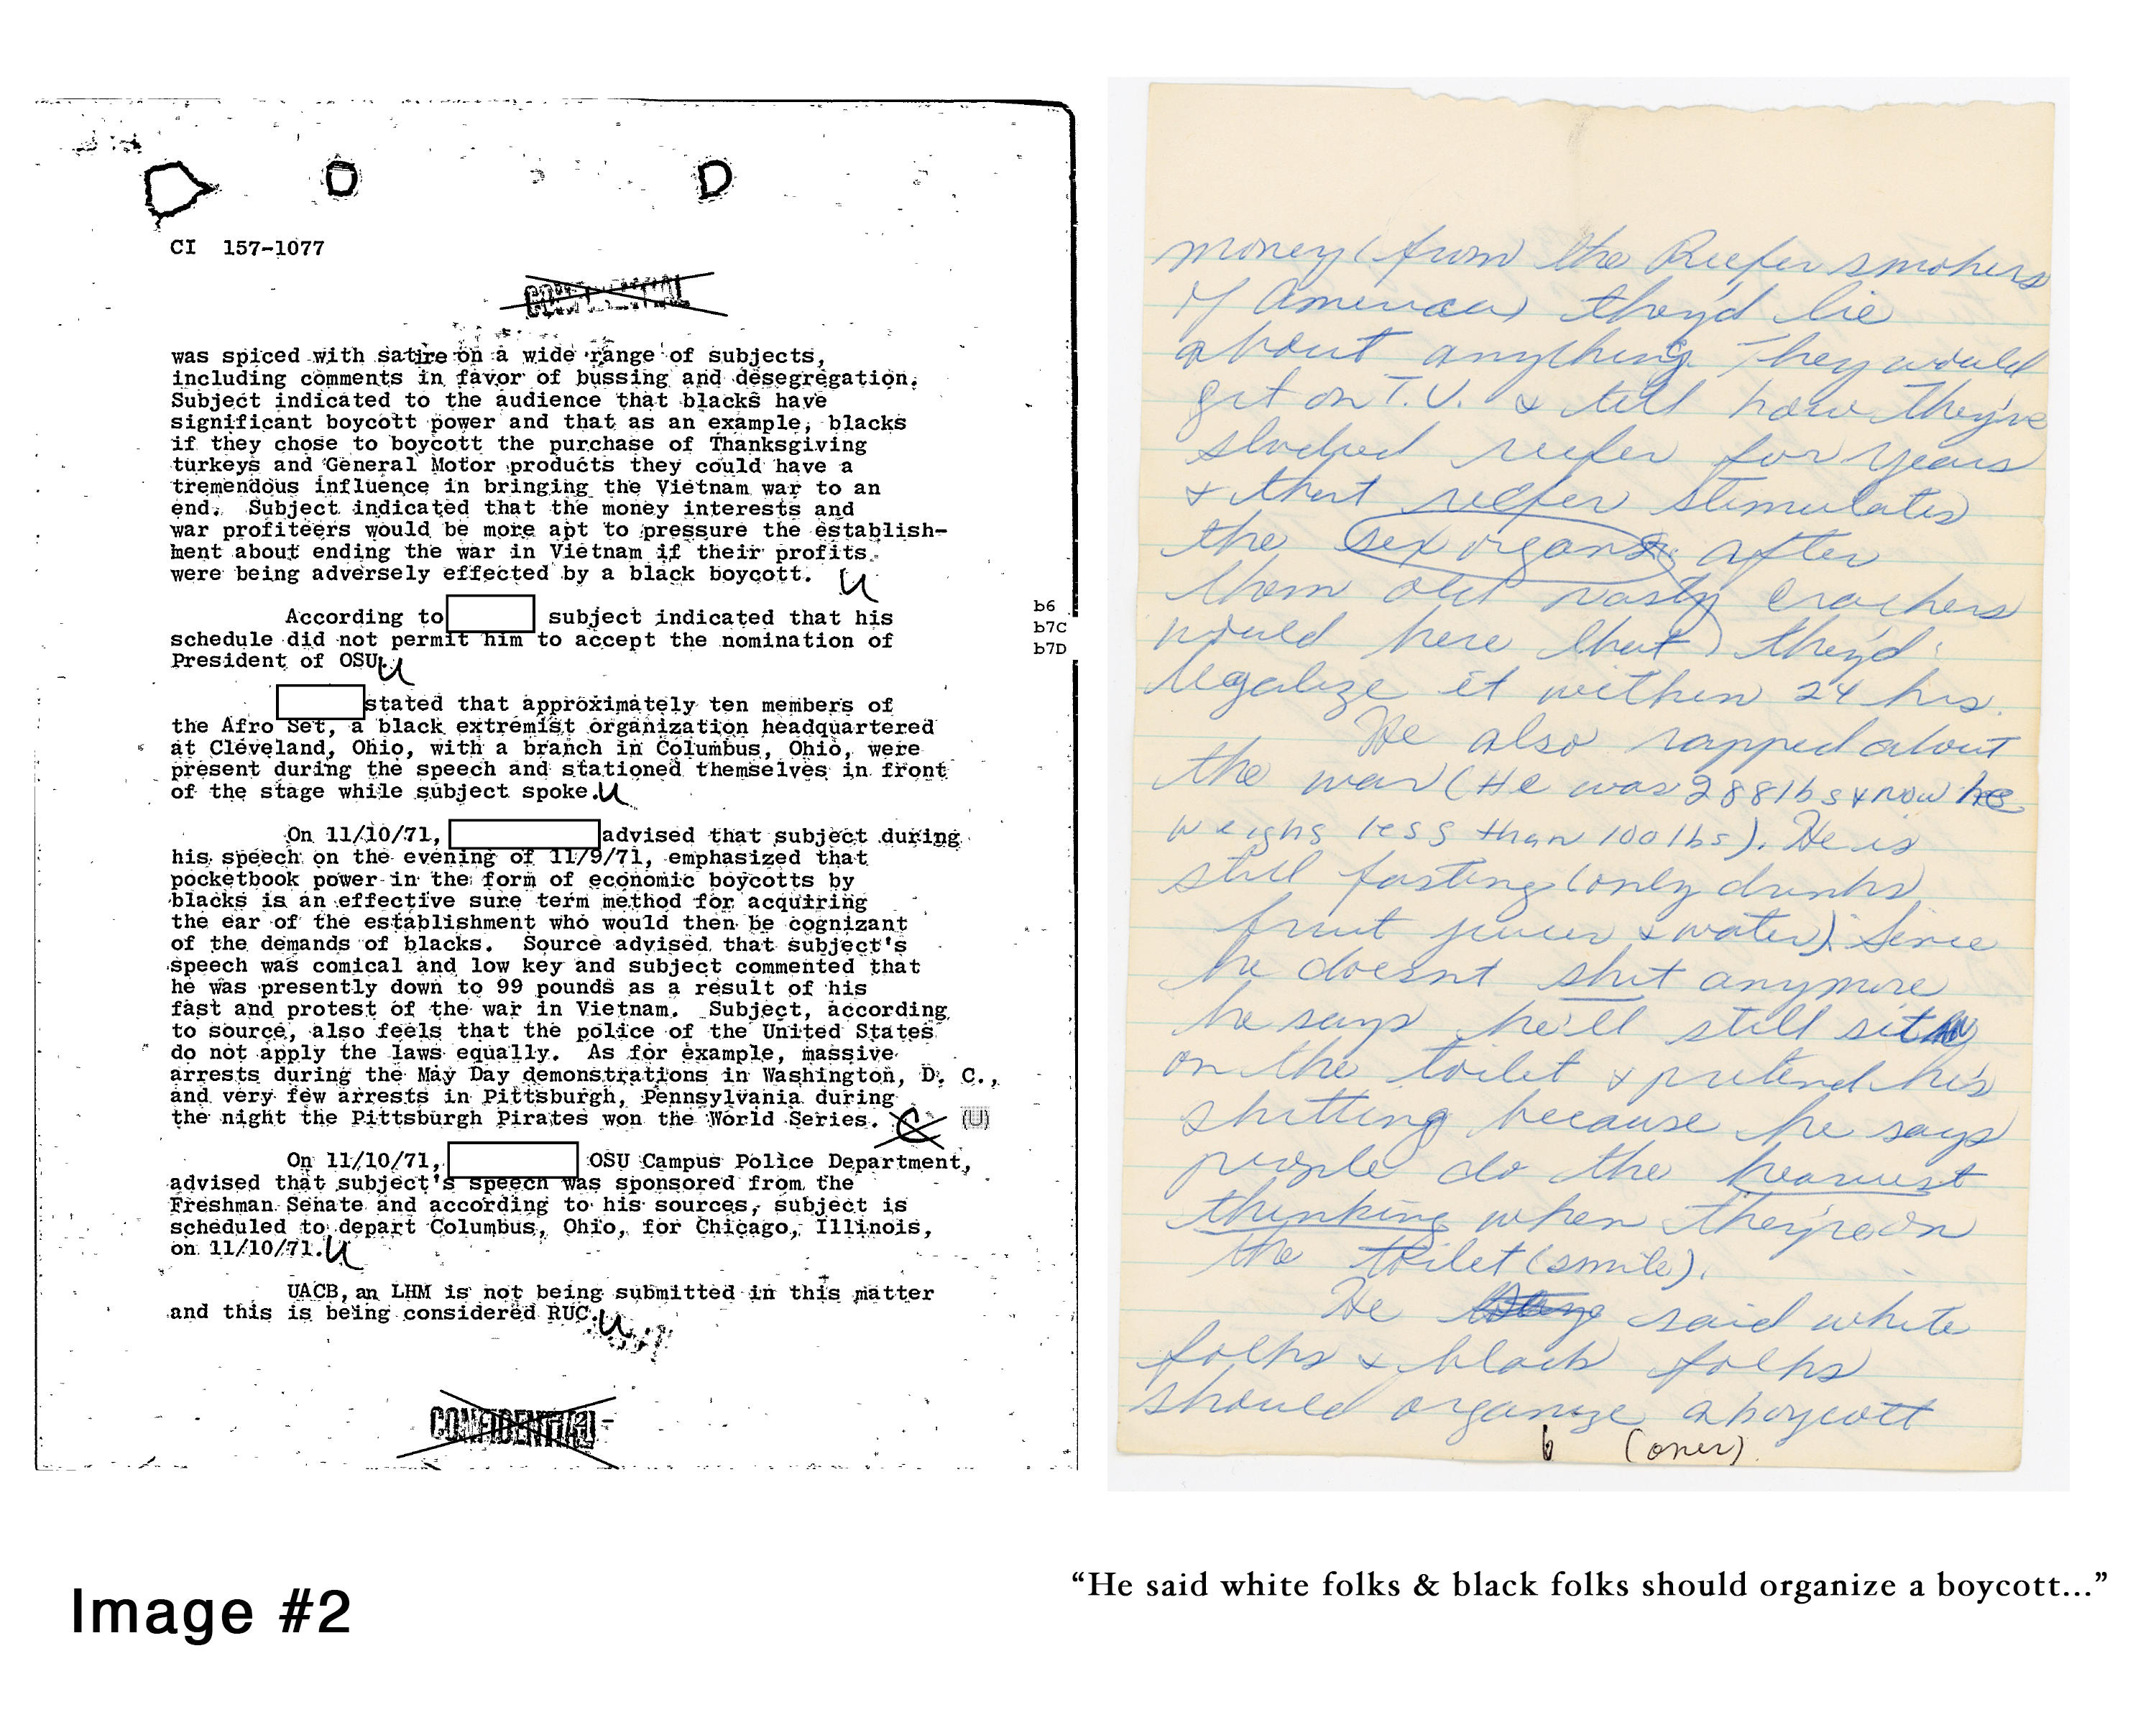 CI 157-1077
CONFIDENTIAL
was spiced with satire on a wide range of subjects,
including comments in favor of bussing and desegregation.
Subject indicated to the audience that blacks have
significant boycott power and that as an example, blacks
if they chose to boycott the purchase of Thanksgiving
turkeys and General Motor products they could have a
tremendous influence in bringing the Vietnam war to an
end. Subject indicated that the money interests and
war profiteers would be more apt to pressure the establish-
ment about ending the war in Vietnam if their profits
were being adversely effected by a black boycott. U
According to subject indicated that his
schedule did not permit him to accept the nomination of
President of OSU. U
b6
b7C
b7D
stated that approximately ten members of
the Afro Set, a black extremist organization headquartered
at Cleveland, Ohio, with a branch in Columbus, Ohio, were
present during the speech and stationed themselves in front
of the stage while subject spoke. U
On 11/10/71, advised that subject during
his speech on the evening of 11/9/71, emphasized that
pocketbook power in the form of economic boycotts by
blacks is an effective sure term method for acquiring
the ear of the establishment who would then be cognizant
of the demands of blacks. Source advised that subject's
speech was comical and low key and subject commented that
he was presently down to 99 pounds as a result of his
fast and protest of the war in Vietnam. Subject, according
to source, also feels that the police of the United States
do not apply the laws equally. As for example, massive
arrests during the May Day demonstrations in Washington, D. C.,
and very few arrests in Pittsburgh, Pennsylvania during
the night the Pittsburgh Pirates won the World Series. C (U)
On 11/10/71, OSU Campus Police Department,
advised that subject's speech was sponsored from the
Freshman Senate and according to his sources, subject is
scheduled to depart Columbus, Ohio, for Chicago, Illinois,
on 11/10/71. U
UACB, an LHM is not being submitted in this matter
and this is being considered RUC. U
CONFIDENTIAL
money (from the Reefer smokers
of America) they'd lie
about anything. They would
get on T.V. & tell how they've
reefer for years
& that reefer stimulates
the sex organs, after
them old nasty crackers
would here that) they'd
legalize it within 24 hrs.
He also rapped about
the war (He was 288 lbs & now he
weighs less than 100 lbs). He is
still fasting (only drinks
fruit juices & water). Since
he doesnt shit anymore
he says he'll still sit
on the toilet & pretend he's
shitting because he says
people do the
thinking when they're on
the toilet (smile).
He said white
folks & black folks
should organize a boycott
6 (over)
Image #2
“He said white folks & black folks should organize a boycott...”